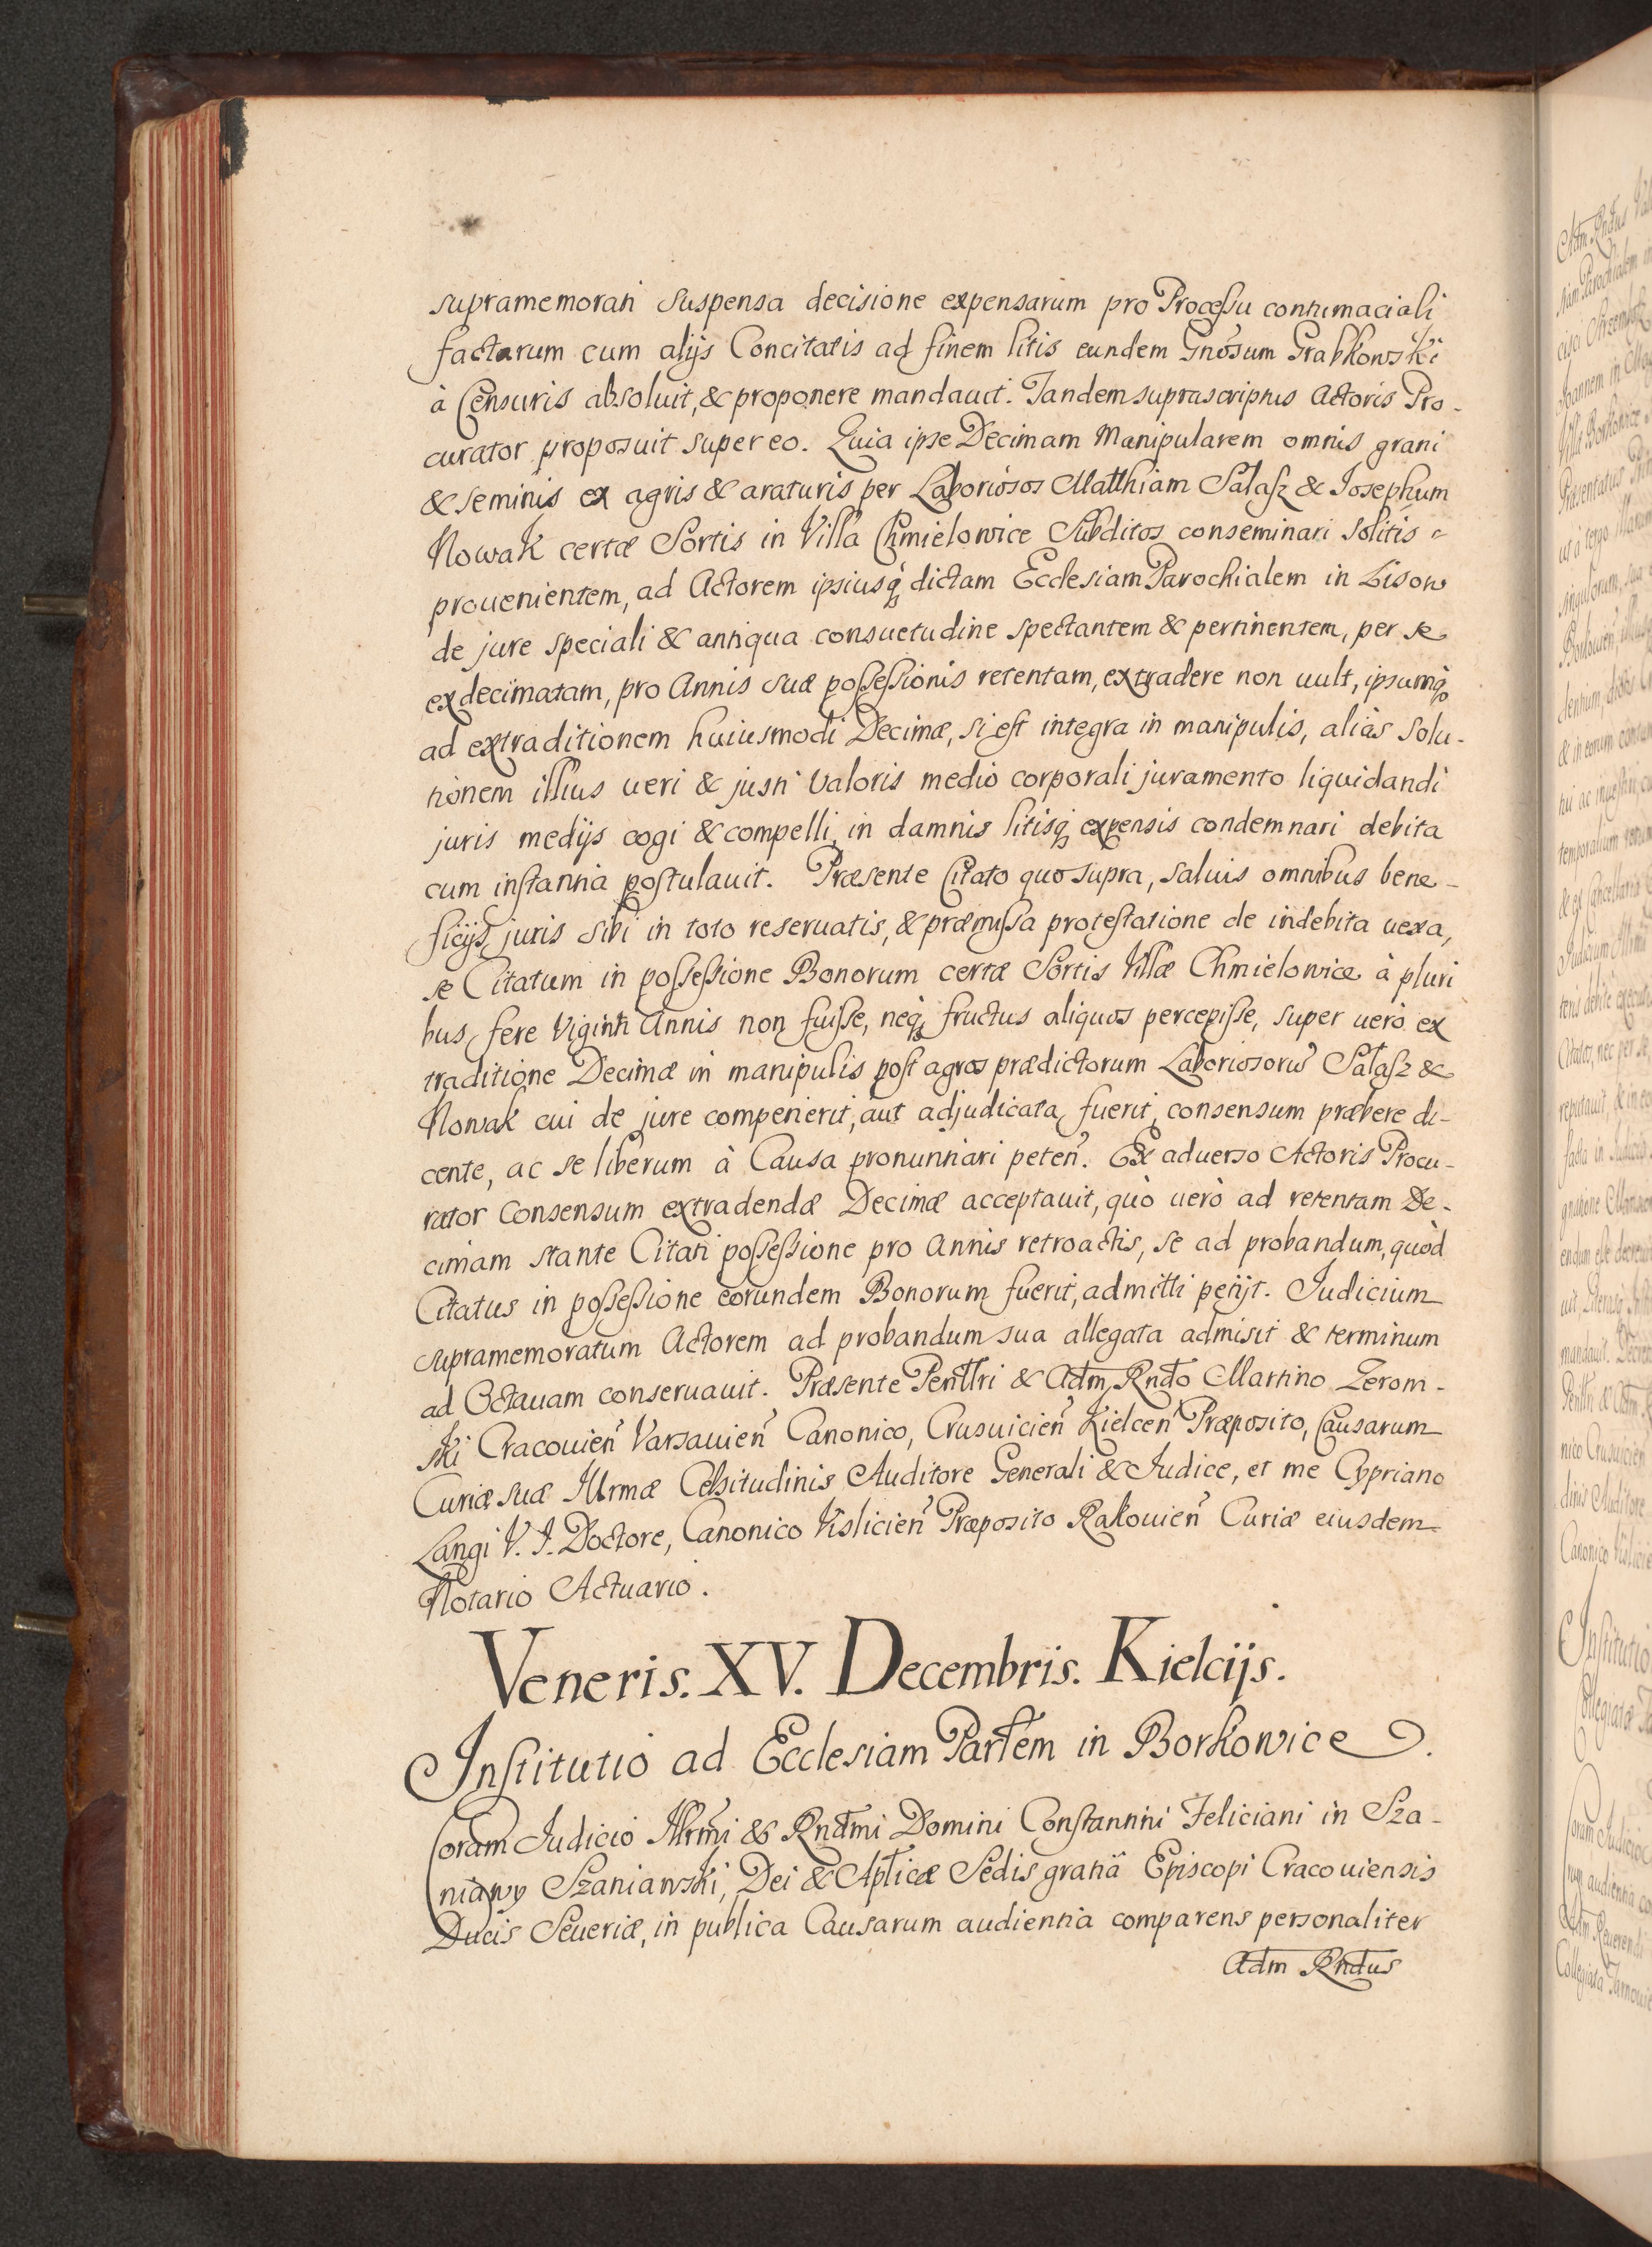 supramemorati suspensa decisione expensarum pro Processu contumaciali
factarum cum alijs Concitatis ad finem litis eundem Gnosum Grabkowski
à Censuris absoluit, & proponere mandauit. Tandem suprascriptus Actoris Pro-
curator proposuit super eo. Quia ipse Decimam Manipularem omnis grani
& seminis ex agris & araturis per Laboriosos Matthiam Sałasz & Josephum
Nowak certæ Sortis in Villa Chmielowice Subditos conseminari solitis
prouenientem, ad Actorem ipsiusq; dictam Ecclesiam Parochialem in Lisow
de jure speciali & antiqua consuetudine spectantem & pertinentem, per se
exdecimatam, pro Annis suæ possessionis retentam, extradere non uult, ipsumq;
ad extraditionem huiusmodi Decimæ, si est integra in manipulis, aliàs solu-
tionem illius ueri & justi Valoris medio corporali juramento liquidandi
juris medijs cogi & compelli, in damnis litisq; expensis condemnari debita
cum instantia postulauit. Præsente Citato quo supra, saluis omnibus bene-
ficijs juris sibi in toto reseruatis, & præmissa protestatione de indebita uexa,
se Citatum in possessione Bonorum certæ Sortis Villæ Chmielowice à pluri
bus fere Viginti Annis non fuisse, neq; fructus aliquos percepisse, super uerò ex
traditione Decimæ in manipulis post agros prædictorum Laboriosorū Sałasz &
Nowak cui de jure competierit, aut adjudicata fuerit, consensum præbere di-
cente, ac se liberum à Causa pronuntiari peteñ. Ex aduerso Actoris Procu-
rator Consensum extradendæ Decimæ acceptauit, quò uerò ad retentam De-
cimam stante Citati possessione pro Annis retroactis, se ad probandum, quòd
Citatus in possessione eorundem Bonorum fuerit, admitti petijt. Judicium
supramemoratum Actorem ad probandum sua allegata admisit & terminum
ad Octauam conseruauit. Præsente Penttri & Adm Rndo Martino Zerom-
ski Cracouieñ Varsauieñ Canonico, Crusuicieñ Kielceñ Præposito, Causarum
Curiæ suæ Illrmæ Celsitudinis Auditore Generali & Judice, et me Cypriano
Langi V. J. Doctore, Canonico Vislicieñ Præposito Rakouieñ Curiæ eiusdem
Notario Actuario.
Veneris. XV. Decembris. Kielcijs.
Institutio ad Ecclesiam Parlem in Borkowice.
Coram Judicio Illrmi & Rndmi Domini Constantini Feliciani in Sza-
niawy Szaniawski, Dei & Aplicæ Sedis gratiâ Episcopi Cracouiensis
Ducis Seueriæ, in publica Causarum audientia comparens personaliter
Adm Rndus